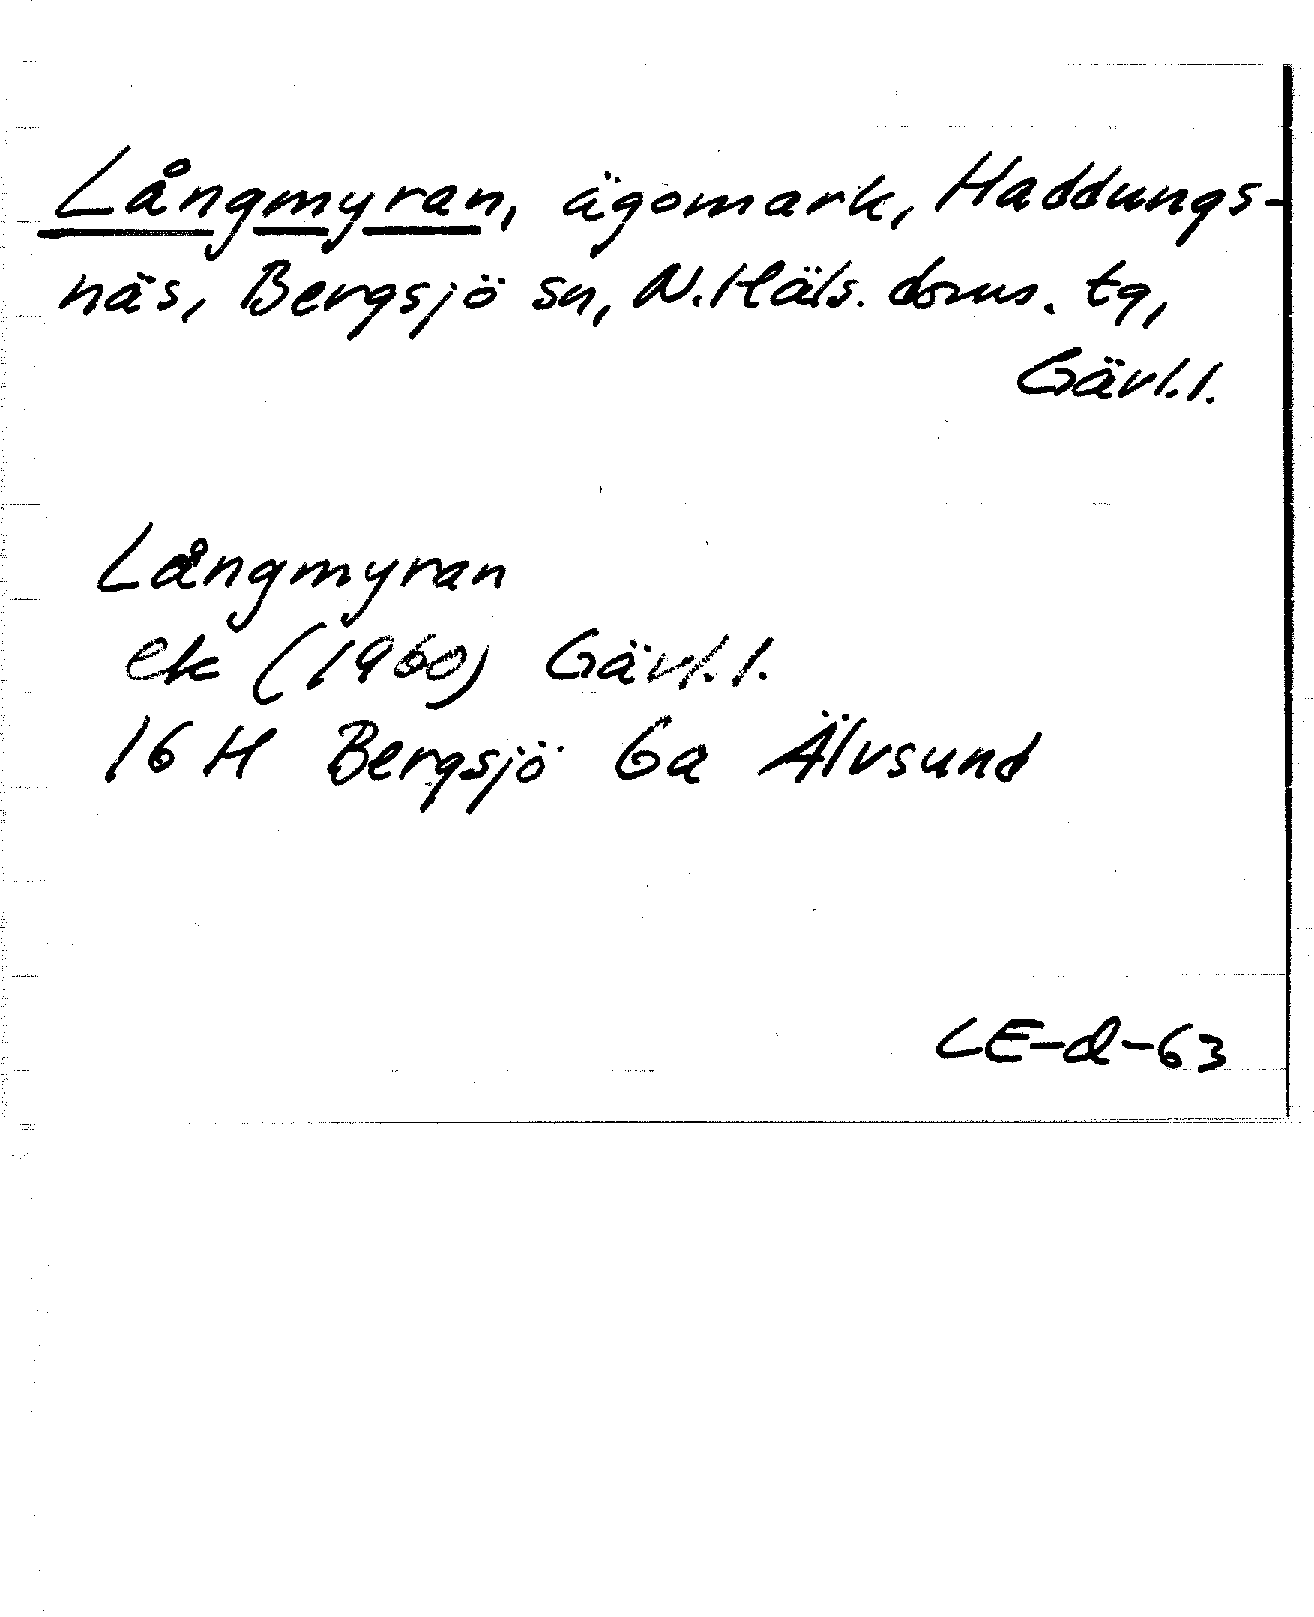 Långmyran, ägomark, Haddungs-
näs, Bergsjö sn, N. Häls. doms. tg,
Gävl. l.
Långmyran
ek (1960) Gävl. l.
16 H Bergsjö 6a Älvsund
LE-d-63